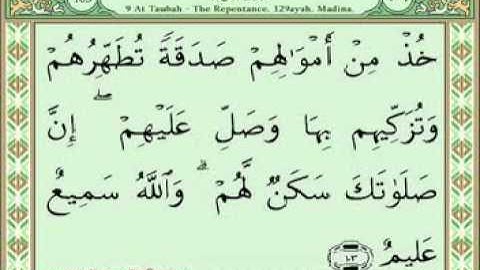 9 At Taubah - The Repentance. 129ayah. Madina.
خُذْ مِنْ أَمْوَٰلِهِمْ صَدَقَةً تُطَهِّرُهُمْ
وَتُزَكِّيهِم بِهَا وَصَلِّ عَلَيْهِمْ ۖ إِنَّ
صَلَوٰتَكَ سَكَنٌ لَّهُمْ ۗ وَٱللَّهُ سَمِيعٌ
عَلِيمٌ ١٠٣